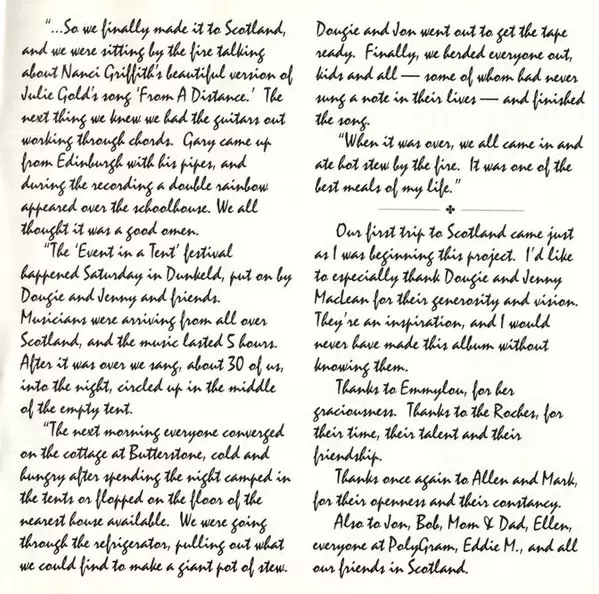 "...So we finally made it to Scotland,
and we were sitting by the fire talking
about Nanci Griffith's beautiful version of
Julie Gold's song 'From A Distance.' The
next thing we knew we had the guitars out
working through chords. Gary came up
from Edinburgh with his pipes, and
during the recording a double rainbow
appeared over the schoolhouse. We all
thought it was a good omen.
"The 'Event in a Tent' festival
happened Saturday in Dunkeld, put on by
Dougie and Jenny and friends.
Musicians were arriving from all over
Scotland, and the music lasted 5 hours.
After it was over we sang, about 30 of us,
into the night, circled up in the middle
of the empty tent.
"The next morning everyone converged
on the cottage at Butterstone, cold and
hungry after spending the night camped in
the tents or flopped on the floor of the
nearest house available. We were going
through the refrigerator, pulling out what
we could find to make a giant pot of stew.
Dougie and Jon went out to get the tape
ready. Finally, we herded everyone out,
kids and all — some of whom had never
sung a note in their lives — and finished
the song.
"When it was over, we all came in and
ate hot stew by the fire. It was one of the
best meals of my life."
Our first trip to Scotland came just
as I was beginning this project. I'd like
to especially thank Dougie and Jenny
MacLean for their generosity and vision.
They're an inspiration, and I would
never have made this album without
knowing them.
Thanks to Emmylou, for her
graciousness. Thanks to the Roches, for
their time, their talent and their
friendship.
Thanks once again to Allen and Mark,
for their openness and their constancy.
Also to Jon, Bob, Mom & Dad, Ellen,
everyone at PolyGram, Eddie M., and all
our friends in Scotland.